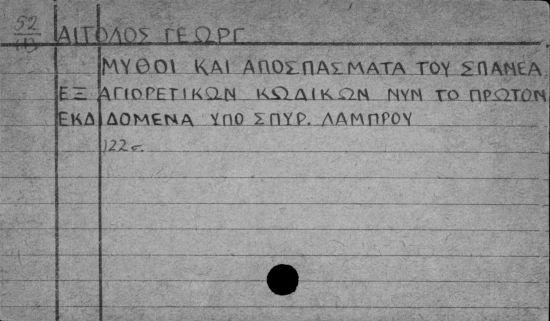 52
ΑΙΤΩΛΟΣ ΓΕΩΡΓ.
ΜΥΘΟΙ ΚΑΙ ΑΠΟΣΠΑΣΜΑΤΑ ΤΟΥ ΣΠΑΝΕΑ
ΕΞ ΑΓΙΟΡΕΤΙΚΩΝ ΚΩΔΙΚΩΝ ΝΥΝ ΤΟ ΠΡΩΤΟΝ
ΕΚΔΙΔΟΜΕΝΑ ΥΠΟ ΣΠΥΡ. ΛΑΜΠΡΟΥ
122σ.